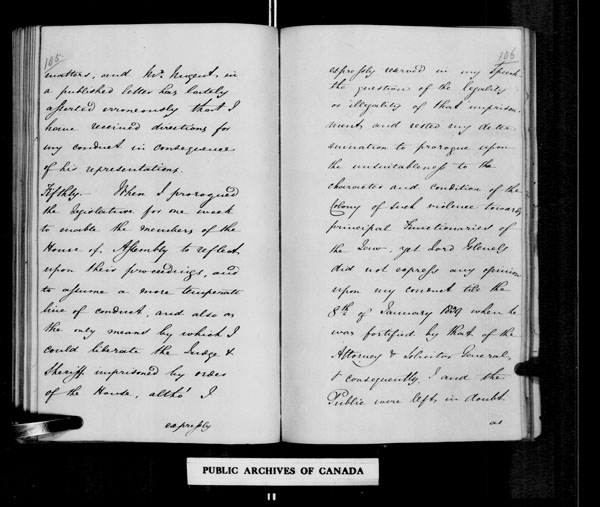 105
matters, and Mr. Nugent, in
a published letter has lately
asserted erroneously that I
have received directions for
my conduct in consequence
of his representations.
Fifthly.— When I prorogued
the legislature for one week
to enable the members of the
House of Assembly to reflect
upon their proceedings, and
to assume a more temperate
line of conduct, and also as
the only means by which I
could liberate the Judge &
Sheriff imprisoned by order
of the House, altho' I
expressly
106
expressly waived in my Speech
the question of the legality
or illegality of that imprison-
ment, and rested my deter-
mination to prorogue upon
the unsuitableness to the
character and condition of the
Colony of such violence towards
principal Functionaries of
the Law, yet Lord Glenelg
did not express any opinion
upon my conduct till the
8th of January 1839 when he
was fortified by that of the
Attorney & Solicitor General,
& consequently, I and the
Public were left in doubt
as
PUBLIC ARCHIVES OF CANADA